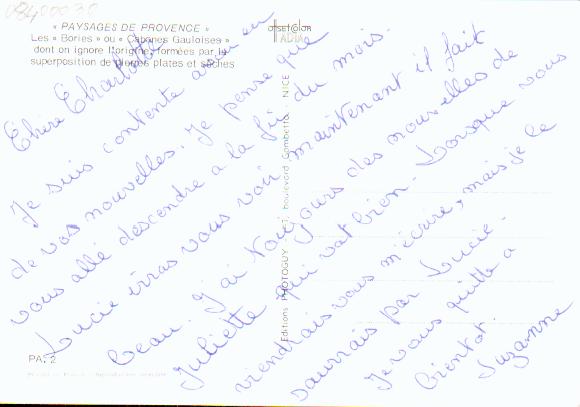 08400030
« PAYSAGES DE PROVENCE »
Les « Bories » ou « Cabanes Gauloises »
dont on ignore l'origine, formées par la
superposition de pierres plates et sèches
offset COLOR
Chère Charlotte
Je suis contente avoir eu
de vos nouvelles. Je pense que
vous allé descendre a la fin du mois.
Lucie irras vous voir maintenant il fait
beau. J'ai toujours des nouvelles de
Juliette qui vat bien. Lorsque vous
viendrais vous m'écrire, mais je le
saurrais par Lucie.
Je vous quitte a
bientot.
Suzanne
Editions PHOTOGUY - boulevard Gambetta - NICE
PA. 2